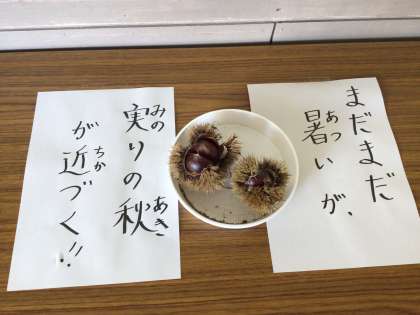 まだまだ
暑いが、
あつ
実りの秋
みの
あき
が近づく!!
ちか